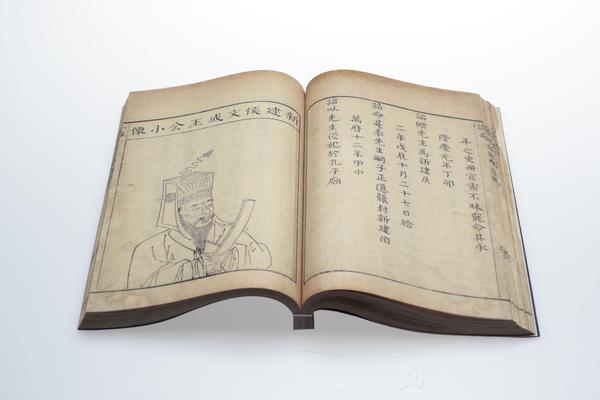 年之史冊實需不昧寵命其承
隆慶元年丁卯
詔贈先生為新建侯
二年戊辰十月二十七日給
誥命是季先生嗣子正億襲封新建伯
萬曆十二年甲申
詔以先生從祀於孔子廟
新建侯文成王公小像